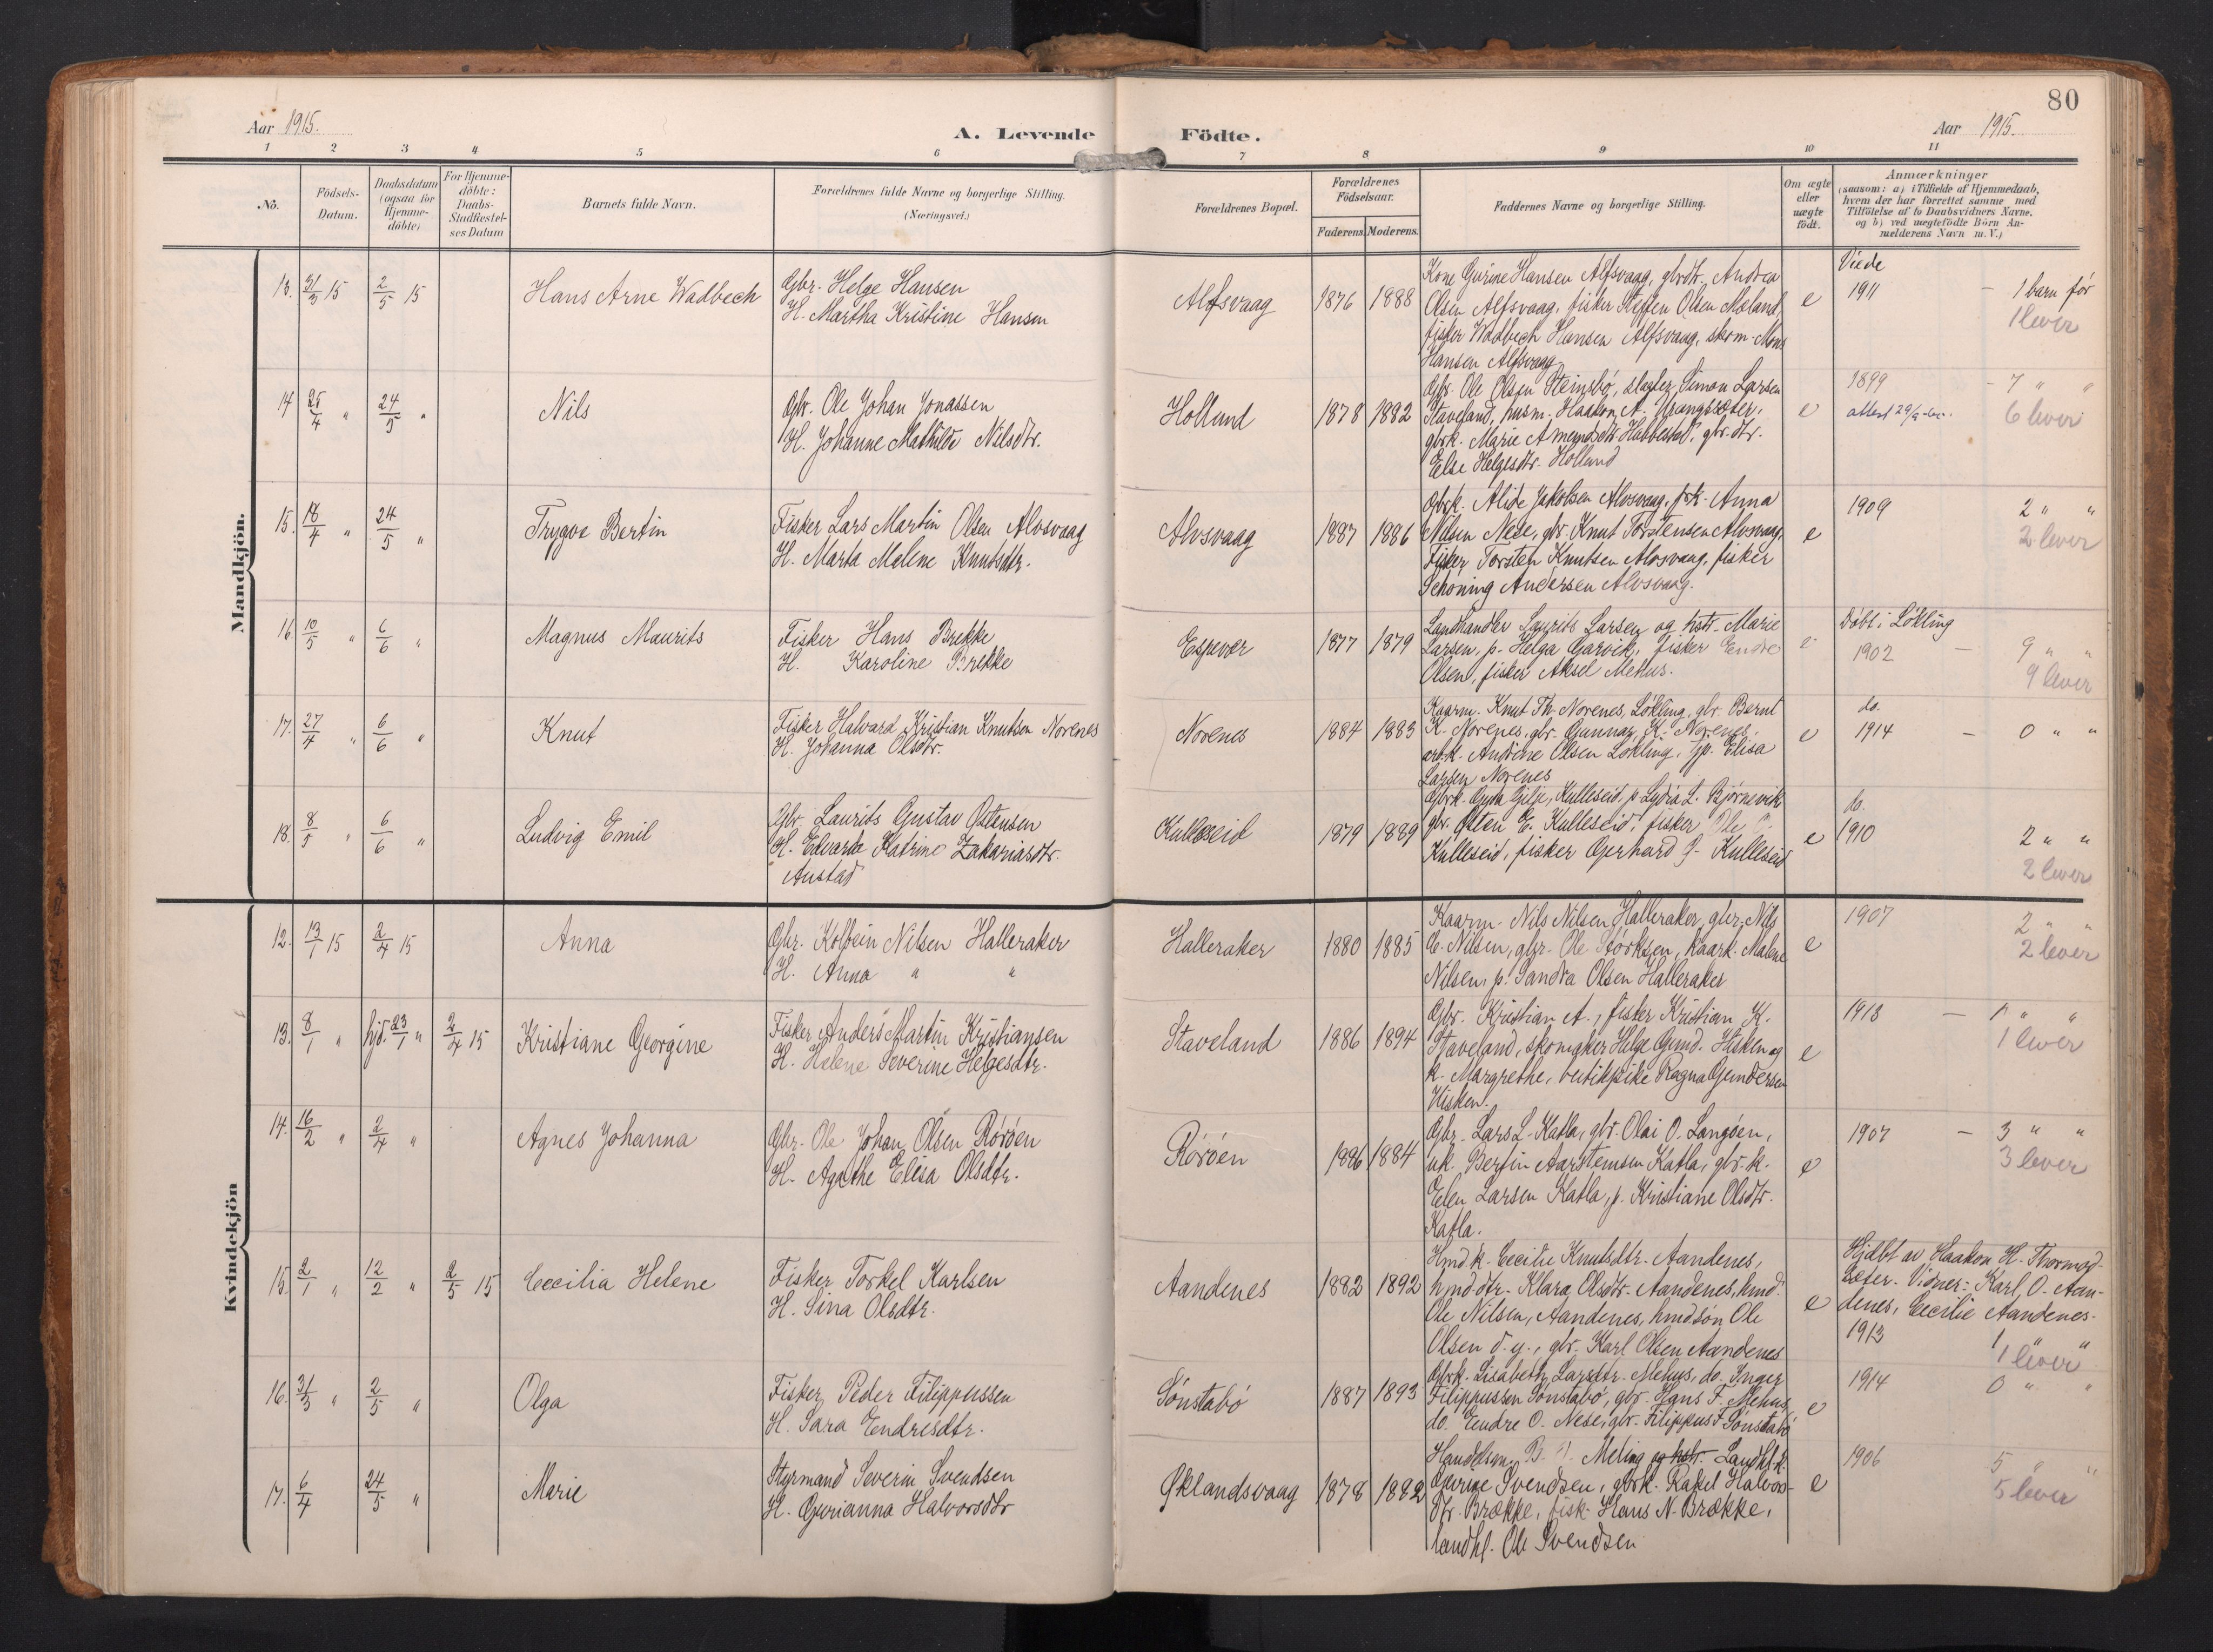 80
Aar 1915.
A. Levende Födte.
Aar 1915.
1 2 3 4 5 6 7 8 9 10 11
No.
Födsels-
Datum.
Daabsdatum
(ogsaa for
Hjemme-
döbte)
For Hjemme-
döbte:
Daabs-
Stadfæstel-
ses Datum
Barnets fulde Navn.
Forældrenes fulde Navne og borgerlige Stilling.
(Næringsvei.)
Forældrenes Bopæl.
Forældrenes
Födselsaar.
Faderens. Moderens.
Faddernes Navne og borgerlige Stilling.
Om ægte
eller
uægte
födt.
Anmærkninger
(saasom: a) i Tilfælde af Hjemmedaab,
hvem der har forrettet samme med
Tilföielse af to Daabsvidners Navne,
og b) ved uægtefödte Börn An-
melderens Navn m. V.)
Mandkjön.
13. 31/3 15 2/5 15
Hans Arne Wadbech
Gbr. Helge Hansen
H. Martha Kristine Hansen
Alfsvaag
1876 1888
Kone Gurine Hansen Alfsvaag, gbrdtr. Andrea
Olsen Alfsvaag, fisker Steffen Olsen Mæland,
fisker Wadbech Hansen Alfsvaag, skom. Mons
Hansen Alfsvaag
e
Viede
1911 - 1 barn før
1 lever
14 25/4 " 24/5 "
Nils
Gbr. Ole Johan Jonassen
H. Johanne Mathilde Nilsdtr.
Holland
1878 1882
Gbr. Ole Olsen Steinsbø, slagter Simon Larsen
Staveland, husm. Haakon A. Vrangsæter,
gbrk. Marie Amundsdtr. Habbestad, gbr. dtr.
Else Helgesdtr. Holland
e
1899 - 7 " "
6 lever
15. 18/4 " 24/5 "
Trygve Bertin
Fisker Lars Martin Olsen Alvsvaag
H. Marta Malene Knutsdtr.
Alvsvaag
1887 1886
Gbrk. Alide Jakobsen Alvsvaag, fsk. Anna
Nilsen Nese, gbr. Knut Torstensen Alvsvaag,
Fisker Torsten Knutsen Alvsvaag, fisker
Schøning Andersen Alvsvaag.
e
1909 2 " "
2 lever
16. 10/5 " 6/6 "
Magnus Maurits
Fisker Hans Brekke
H. Karoline Brekke
Espevær
1877 1879
Landhandler Laurits Larsen og hstr. Marie
Larsen, p. Helga Garvik, fisker Endre
Olsen, fisker Aksel Mehus.
e
Døbt i Løkling
1902 - 9 " "
9 lever
17. 27/4 " 6/6 "
Knut
Fisker Halvard Kristian Knutsen Norenes
H. Johanna Olsdtr.
Norenes
1884 1883
Kaarm. Knut Th. Norenes, Løkling, gbr. Bernt
K. Norenes, gbr. Gunnar K. Norenes,
arbk. Andrine Olsen Løkling, p. Elisa
Larsen Norenes
e
do.
1914 - 0 " "
18. 8/5 " 6/6 "
Ludvig Emil
Gbr. Laurits Gustav Østensen
H. Edvarda Katrine Zakariasdtr.
Austad
Kulleseid
1879 1889
Gbrk. Gyda Gilje, Kulleseid, p. Lydia L. Bjørnevik,
gbr. Østen E. Kulleseid, fisker Ole
Kulleseid, fisker Gerhard J. Kulleseid
e
do.
1910 2 " "
2 lever
Kvindekjön
12. 13/1 15 2/4 15
Anna
Gbr. Kolbein Nilsen Halleraker
H. Anna " "
Halleraker
1880 1885
Kaarm. Nils Nilsen Halleraker, gbr. Nils
C. Nilsen, gbr. Ole Størksen, kaark. Malene
Nilsen, p. Sandra Olsen Halleraker
e
1907 2 " "
2 lever
13. 8/1 " hjd. 23/1 " 2/4 15
Kristiane Georgine
Fisker Anders Martin Kristiansen
H. Helene Severine Helgesdtr.
Staveland
1886 1894
Gbr. Kristian A., fisker Kristian K.
Staveland, skomaker Helge Gund. Hisken og
k. Margrethe, butikpike Ragna Gundersen
Hisken.
e
1913 - 1 " "
1 lever
14. 16/2 " 2/4 "
Agnes Johanna
Gbr. Ole Johan Olsen Rørøen
H. Agathe Elisa Olsdtr.
Rørøen
1886 1884
Gbr. Lars L. Katla, gbr. Olai O. Langøen,
uk. Bertin Aarstensen Katla, gbr. k.
Elen Larsen Katla, p. Kristiane Olsdtr.
Katla.
e
1907 - 3 " "
3 lever
15. 2/1 " 12/2 " 2/5 15
Cecilia Helene
Fisker Torkel Karlsen
H. Sina Olsdtr.
Aandenes
1882 1892
Hmd. k. Cecilie Knutsdtr. Aandenes,
hmd. dtr. Klara Olsdtr. Aandenes, hmd.
Ole Nilsen, Aandenes, hmd.søn Ole
Olsen d. y., gbr. Karl Olsen Aandenes
e
Hjdbt av Haakon H. Thormod-
sæter. Vidner: Karl O. Aan-
denes, Cecilie Aandenes.
1913 1 " "
1 lever
16. 31/3 " 2/5 "
Olga
Fisker Peder Filippussen
H. Sara Endresdtr.
Sønstabø
1887 1893
Gbrk. Lisabeth Larsdtr. Mehus, do. Inger
Filippussen Sønstabø, gbr. Hans F. Mehus,
do. Endre O. Nese, gbr. Filippus F. Sønstabø
e
1914 0 " "
17. 6/4 24/5 "
Marie
Styrmand Severin Svendsen
H. Gurianna Halvorsdtr
Øklandsvaag
1878 1882
Handelsm. B. Meling og hstr. Landhl.k.
Gurine Svendsen, gbrk. Rakel Halvors-
dtr. Brække, fisk. Hans N. Brække,
landhl. Ole Svendsen
e
1906 5 " "
5 lever